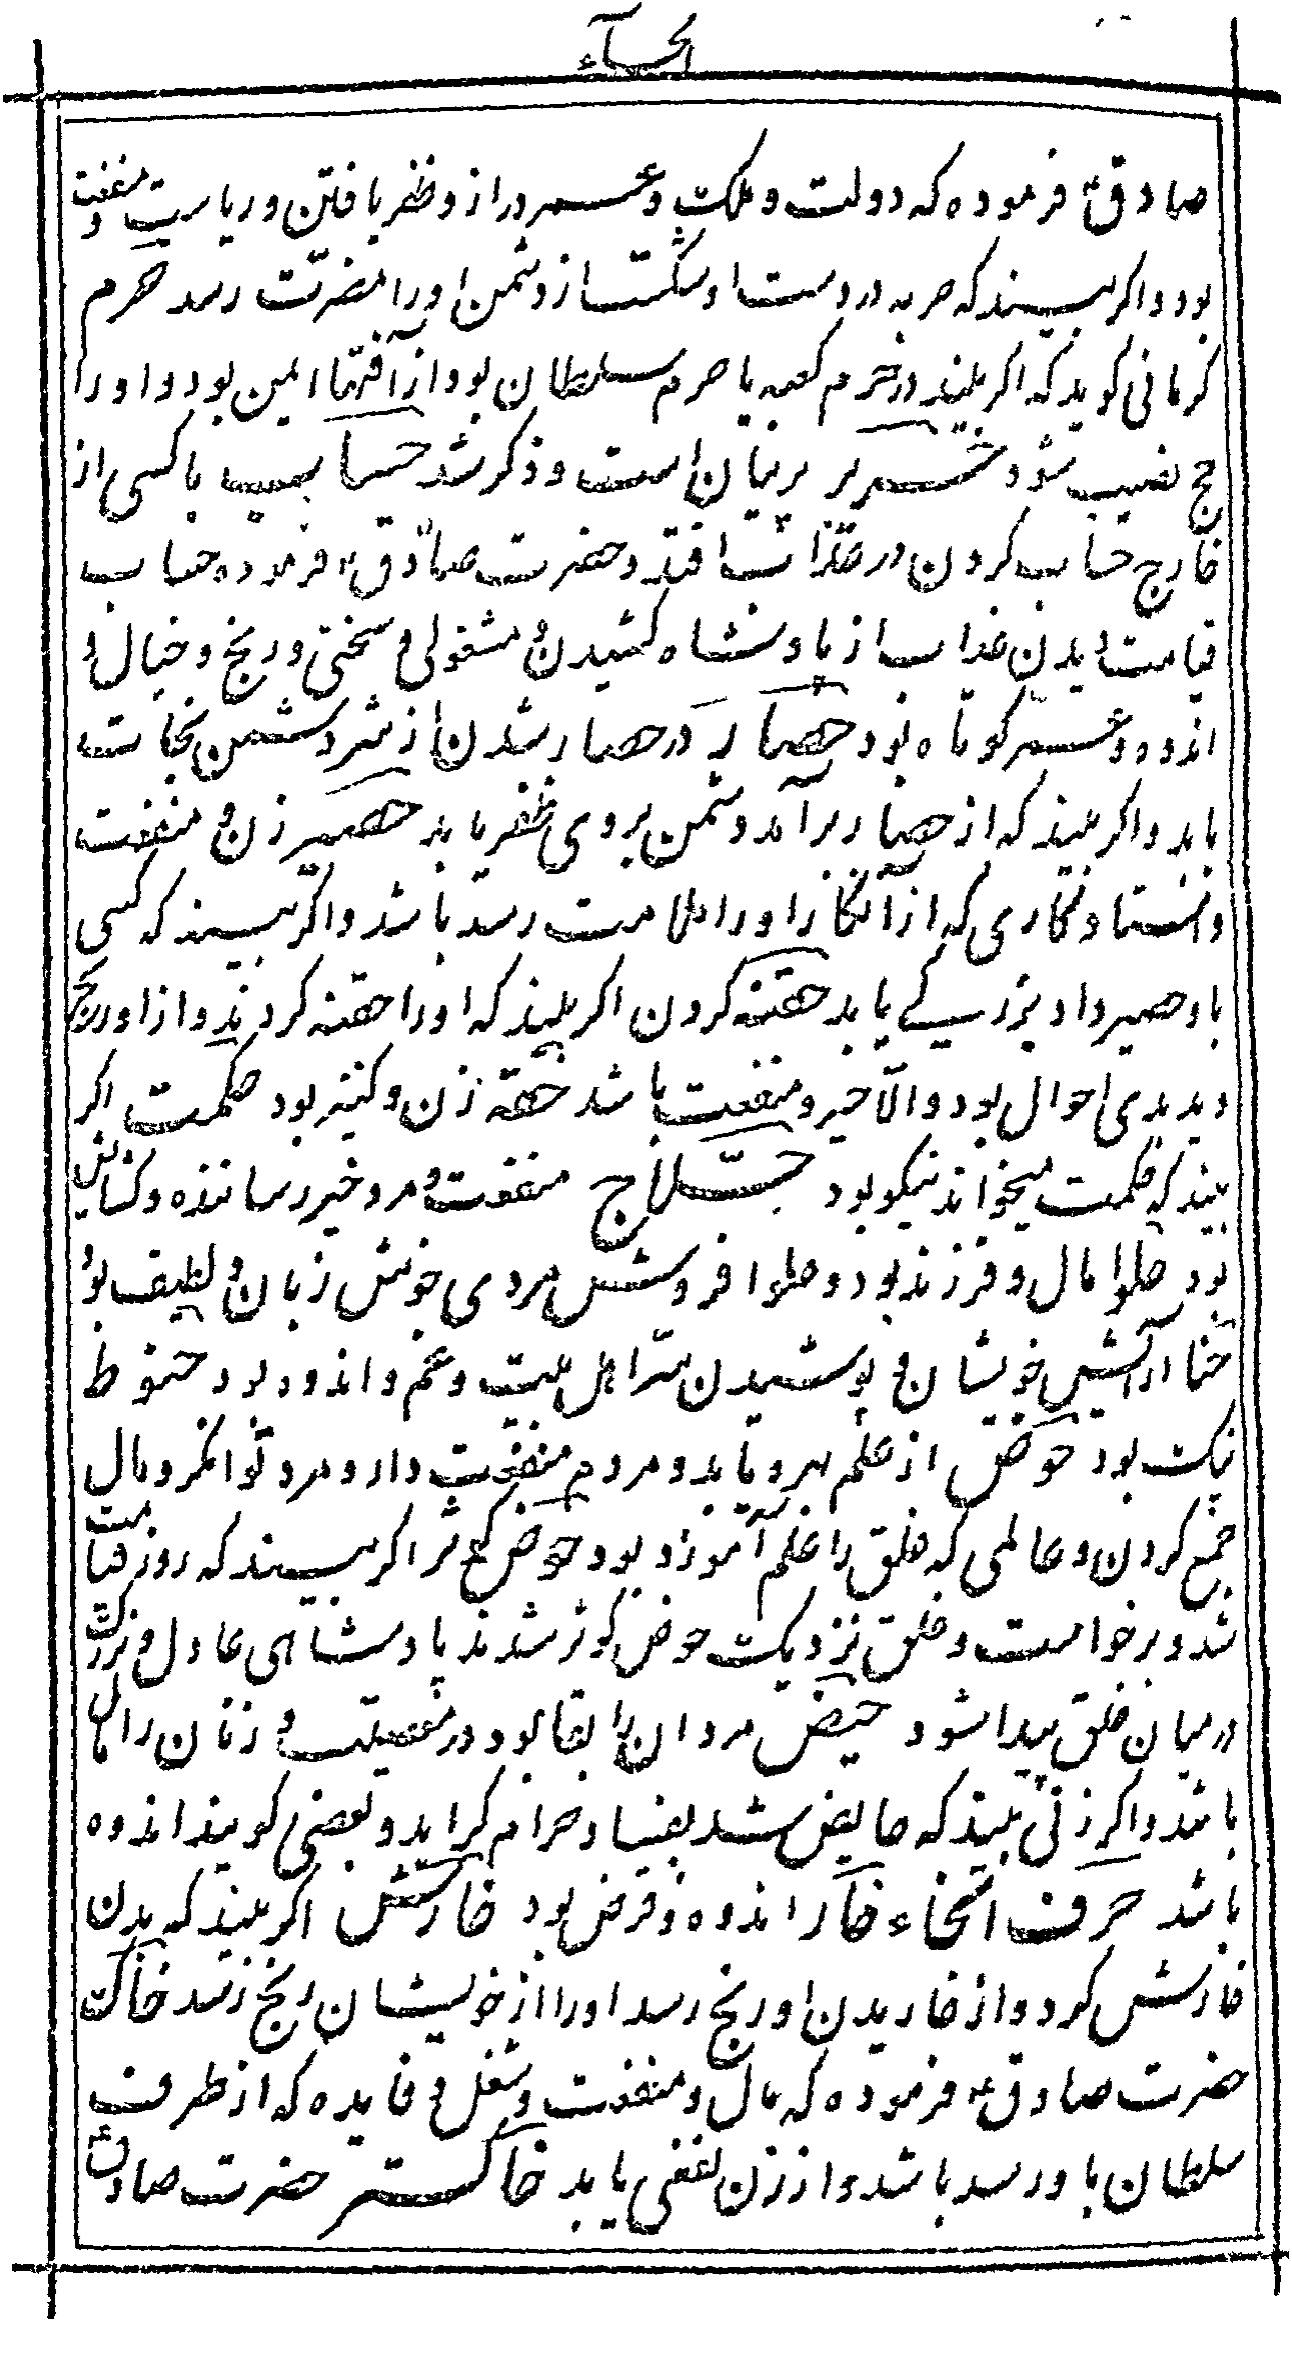 الحاء
صادق؏ فرموده که دولت و ملک و عمر دراز و ظفر یافتن و ریاست و منفعت
بود و اکر بیند که حربه در دست او شکست از دشمن اورا مضرت رسد حرم
کرمانی کوید که اکر بیند در حرم کعبه یا حرم سلطان بود از آفتها ایمن بود و اورا
حج نصیب شود حریر پرنیان است و ذکر شد حساب با کسی از
خارج حساب کردن در عذاب افتد و حضرت صادق؏ فرموده حساب
قیامت دیدن عذاب از پادشاه کشیدن و مشغولی و سختی و رنج و خیال و
اندوه و عمر کوتاه بود حصاری در حصار شدن از شر دشمن نجات
یابد و اکر بیند که از حصار برآمد دشمن بروی ظفر یابد حصیر زن و منفعت
و کاری که از آن کار اورا ملامت رسد باشد و اکر بیند که کسی
باو حصیر داد بزرکی یابد حقنه کردن اکر بیند که اورا حقنه کردند و از او رنج
دید بدی احوال بود والا خیر و منفعت باشد حقه زن و کنیز بود حکمت اکر
بیند که حکمت میخواند نیکو بود حلاج منفعت و مرد خیر رساننده و کشایش
بود حلوا مال و فرزند بود و حلوا فروش مردی خوش زبان و لطیف بود
حنا آرایش خویشان و پوشیدن سر اهل بیت و غم و اندوه بود حنوط
نیک بود حوض از علم بهره یابد و مردم منفعت دار و مرد توانکر و مال
جمع کردن و عالمی که خلق را علم آموزد بود حوض کوثر اکر بیند که روز قیامت
شد و برخواست و خلق نزدیک حوض کوثر شدند پادشاهی عادل و بزرک
در میان خلق پیدا شود حیض مردان را بقا بود در معصیت و زنان را مال
باشد و اکر زنی بیند که حایض شد بفساد و حرام کراید و بعضی کویند اندوه
باشد حرف الخاء خار اندوه و قرض بود خارش اکر بیند که بدن
خارش کرد و از خاریدن او رنج رسد اورا از خویشان رنج رسد خاک
حضرت صادق؏ فرموده که مال و منفعت و شغل و فایده که از طرف
سلطان باو رسد باشد و از زن نفعی یابد خاکستر حضرت صادق؏